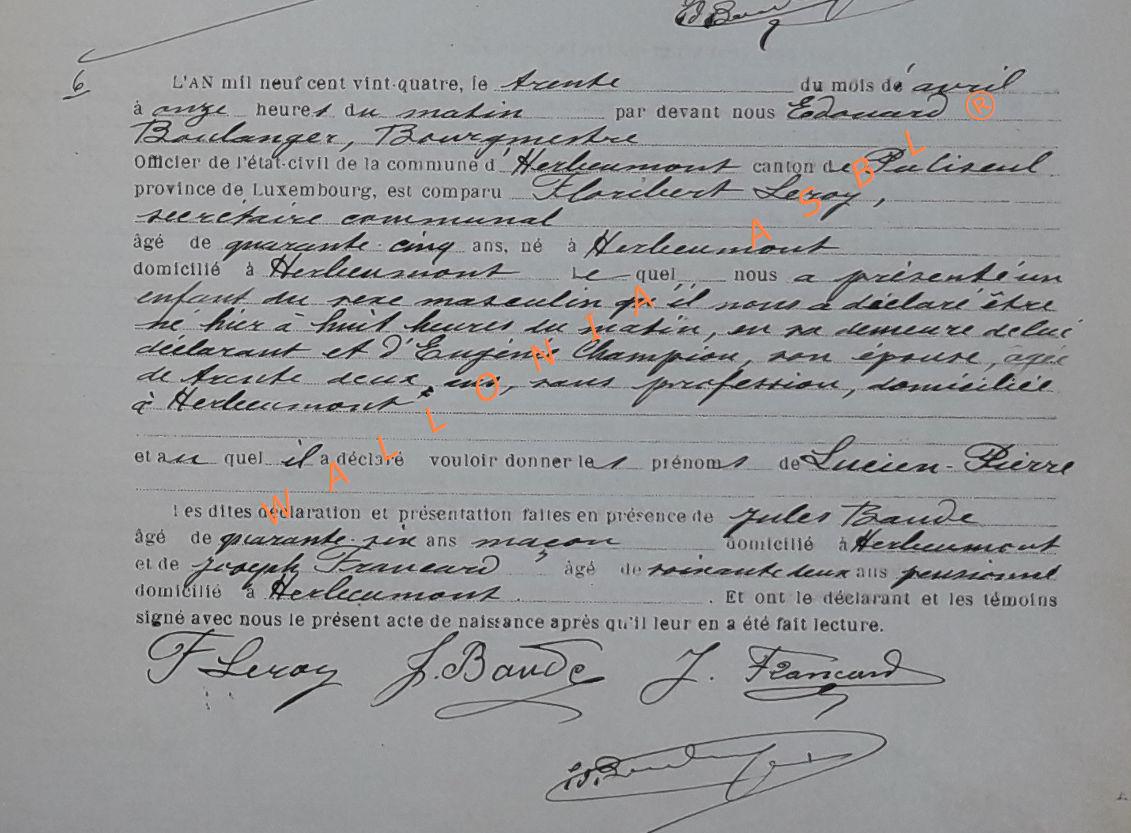 Ed Boul
6
L'AN mil neuf cent vint-quatre, le trente du mois de avril
à onze heures du matin par devant nous Edouard ®
Boulanger, Bourgmestre
Officier de l'état-civil de la commune d'Herbeumont canton de Paliseul
province de Luxembourg, est comparu Floribert Leroy,
secrétaire communal
âgé de quarante-cinq ans, né à Herbeumont
domicilié à Herbeumont Le quel nous a présenté un
enfant du sexe masculin qu'il nous a déclaré être
né hier à huit heures du matin, en sa demeure de lui
déclarant et d'Eugénie Champion, son épouse, âgée
de trente deux ans, sans profession, domiciliée
à Herbeumont
et au quel il a déclaré vouloir donner les prénoms de Lucien-Pierre
Les dites déclaration et présentation faites en présence de Jules Baude
âgé de quarante-six ans maçon domicilié à Herbeumont
et de Joseph Francard, âgé de soixante deux ans pensionné
domicilié à Herbeumont. Et ont le déclarant et les témoins
signé avec nous le présent acte de naissance après qu'il leur en a été fait lecture.
F Leroy J. Baude J. Francard
Ed. Boulanger
WALLONIA ASBL